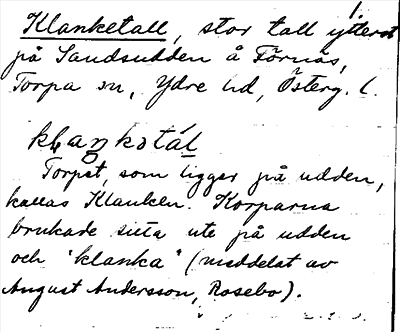 Klanketall, stor tall ytterst
på Sandsudden å Förnäs,
Torpa sn, Ydre hd, Österg. l.
klaŋkətál
Torpet, som ligger på udden,
kallas Klanken. Korparna
brukade sitta ute på udden
och "klanka" (meddelat av
August Andersson, Rosebo).